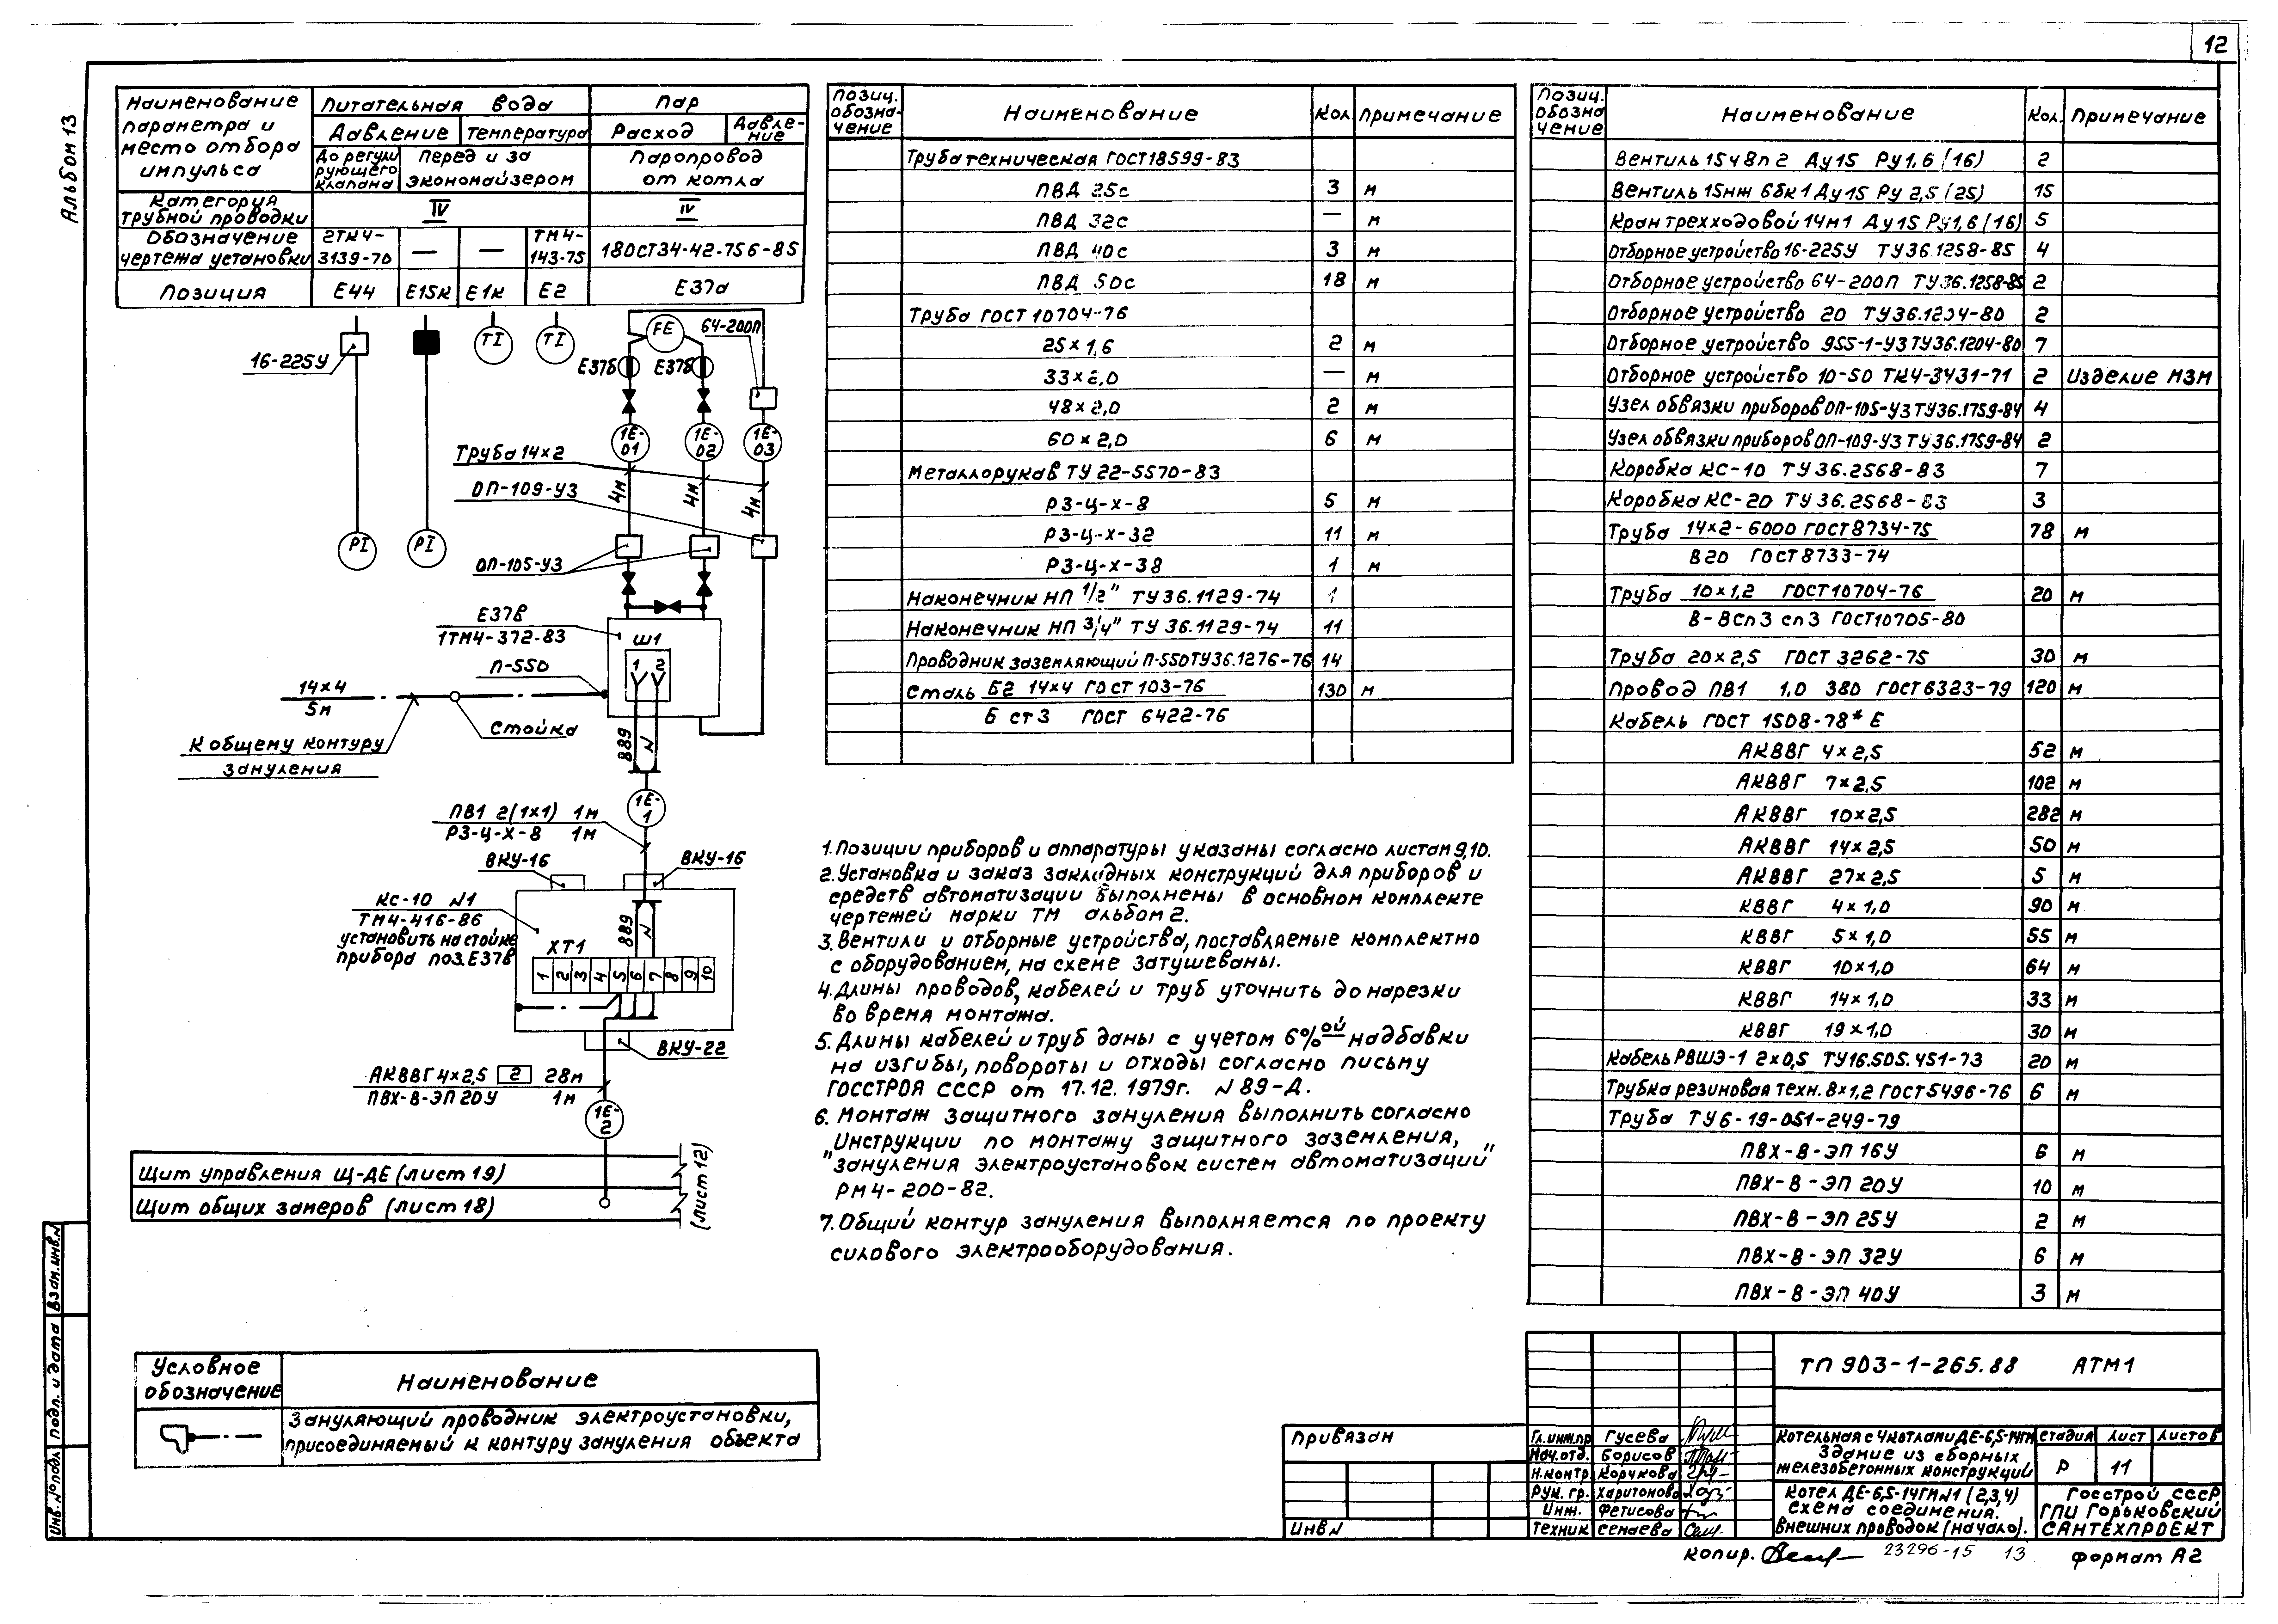 12
Альбом 13
Наименование параметра и место отбора импульса
Питательная вода
Пар
Давление
Температура
Расход
Давление
До регулирующего клапана
Перед и за экономайзером
Паропровод от котла
Категория трубной проводки
IV
IV
Обозначение чертежа установки
2ТК4-3139-70
—
—
ТМ4-143-75
18ОСТ34-42-756-85
Позиция
Е44
Е15к
Е1к
Е2
Е37а
16-225У
TI
TI
FE
64-200П
Е37б
Е37б
1Е-01
1Е-02
1Е-03
Труба 14×2
ОП-109-У3
4м
4м
4м
PI
PI
ОП-105-У3
Е37в
1ТМ4-372-83
Ш1
1 2
П-550
14×4
5м
Стойка
К общему контуру
зануления
889
N
1Е-1
ПВ1 2(1×1) 1м
РЗ-Ц-Х-8 1м
ВКУ-16
ВКУ-16
КС-10 N1
ТМ4-416-86
установить на стойке
прибора поз.Е37в
ХТ1
889
N
1 2 3 4 5 6 7 8 9 10
ВКУ-22
АКВВГ 4×2,5 2 28м
ПВХ-В-ЭП 20У 1м
1Е-2
Щит управления Щ-ДЕ (лист 19)
Щит общих замеров (лист 18)
(лист 12)
Условное обозначение
Наименование
Зануляющий проводник электроустановки,
присоединяемый к контуру зануления объекта
Позиц. обозначение
Наименование
Кол
Примечание
Труба техническая ГОСТ18599-83
ПВД 25с 3 м
ПВД 32с — м
ПВД 40с 3 м
ПВД 50с 18 м
Труба ГОСТ 10704-76
25×1,6 2 м
33×2,0 — м
48×2,0 2 м
60×2,0 6 м
Металлорукав ТУ 22-5570-83
РЗ-Ц-Х-8 5 м
РЗ-Ц-Х-32 11 м
РЗ-Ц-Х-38 1 м
Наконечник НП 1/2" ТУ36.1129-74 1
Наконечник НП 3/4" ТУ 36.1129-74 11
Проводник заземляющий П-550ТУ36.1276-76 14
Сталь Б2 14×4 ГОСТ 103-76 130 м
Б ст3 ГОСТ 6422-76
1. Позиции приборов и аппаратуры указаны согласно листам 9,10.
2. Установка и заказ закладных конструкций для приборов и
средств автоматизации выполнены в основном комплекте
чертежей марки ТМ альбом 2.
3. Вентили и отборные устройства, поставляемые комплектно
с оборудованием, на схеме затушеваны.
4. Длины проводов, кабелей и труб уточнить до нарезки
во время монтажа.
5. Длины кабелей и труб даны с учетом 6%ой надбавки
на изгибы, повороты и отходы согласно письму
ГОССТРОЯ СССР от 17.12.1979г. N 89-Д.
6. Монтаж защитного зануления выполнить согласно
"Инструкции по монтажу защитного заземления,
зануления электроустановок систем автоматизации"
РМ4-200-82.
7. Общий контур зануления выполняется по проекту
силового электрооборудования.
Позиц. обозначение
Наименование
Кол.
Примечание
Вентиль 15ч8п2 Ду15 Ру1,6 (16) 2
Вентиль 15нж 6бк1 Ду15 Ру 2,5 (25) 15
Кран трехходовой 14м1 Ду15 Ру1,6 (16) 5
Отборное устройство 16-225У ТУ36.1258-85 4
Отборное устройство 64-200П ТУ36.1258-85 2
Отборное устройство 20 ТУ36.1204-80 2
Отборное устройство 955-1-У3 ТУ36.1204-80 7
Отборное устройство 10-50 ТК4-3431-71 2 Изделие МЗМ
Узел обвязки приборов ОП-105-У3 ТУ36.1759-84 4
Узел обвязки приборов ОП-109-У3 ТУ36.1759-84 2
Коробка КС-10 ТУ36.2568-83 7
Коробка КС-20 ТУ36.2568-83 3
Труба 14×2-6000 ГОСТ8734-75 78 м
В20 ГОСТ8733-74
Труба 10×1,2 ГОСТ10704-76 20 м
В-ВСп3 сп3 ГОСТ10705-80
Труба 20×2,5 ГОСТ 3262-75 30 м
Провод ПВ1 1,0 380 ГОСТ6323-79 120 м
Кабель ГОСТ 1508-78* Е
АКВВГ 4×2,5 52 м
АКВВГ 7×2,5 102 м
АКВВГ 10×2,5 282 м
АКВВГ 14×2,5 50 м
АКВВГ 27×2,5 5 м
КВВГ 4×1,0 90 м
КВВГ 5×1,0 55 м
КВВГ 10×1,0 64 м
КВВГ 14×1,0 33 м
КВВГ 19×1,0 30 м
Кабель РВШЭ-1 2×0,5 ТУ16.505.451-73 20 м
Трубка резиновая техн. 8×1,2 ГОСТ5496-76 6 м
Труба ТУ6-19-051-249-79
ПВХ-В-ЭП 16У 6 м
ПВХ-В-ЭП 20У 10 м
ПВХ-В-ЭП 25У 2 м
ПВХ-В-ЭП 32У 6 м
ПВХ-В-ЭП 40У 3 м
ТП 903-1-265.88 АТМ1
Привязан
Инв N
Гл.инж.пр Гусева
Нач.отд. Борисов
Н.контр. Корчкова
Рук. гр. Харитонова
Инж. Фетисова
Техник Семаева
Котельная с 4 котлами ДЕ-6,5-14ГМ
Здание из сборных
железобетонных конструкций
Стадия Лист Листов
Р 11
Котел ДЕ-6,5-14ГМ N1 (2,3,4)
Схема соединения
внешних проводок (начало).
Госстрой СССР
ГПИ Горьковский
САНТЕХПРОЕКТ
Копир.
23296-15 13
формат А2
Инв. N подл.
Подп. и дата
Взам. инв. N